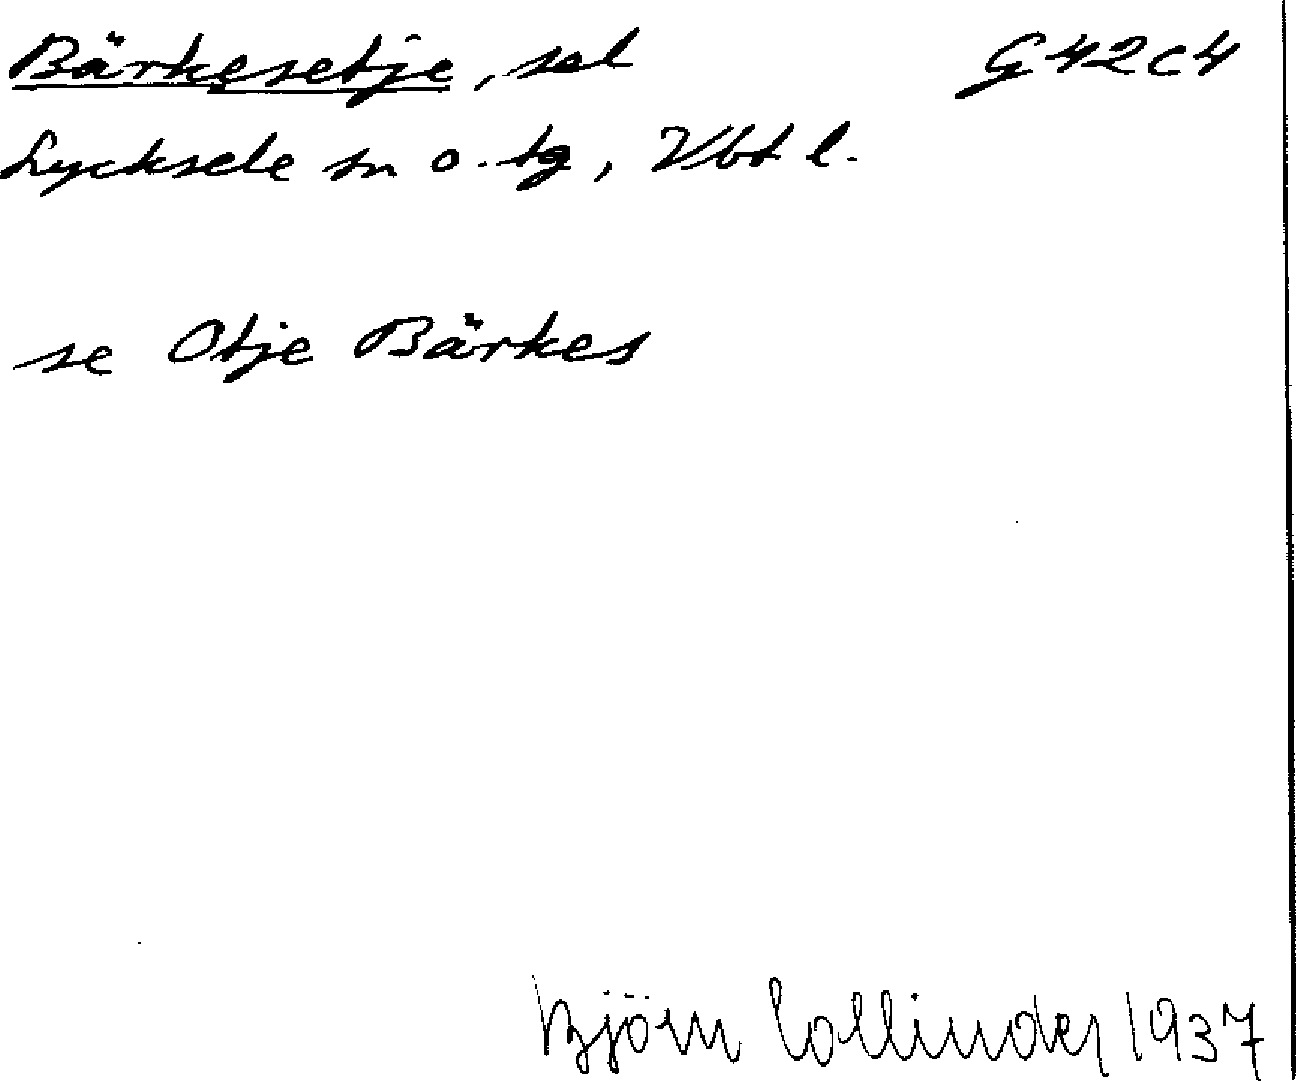 Bärkesetje, sel G42c4
Lycksele sn o. tg, Vbt l.
se Otje Bärkes
Björn Collinder 1937